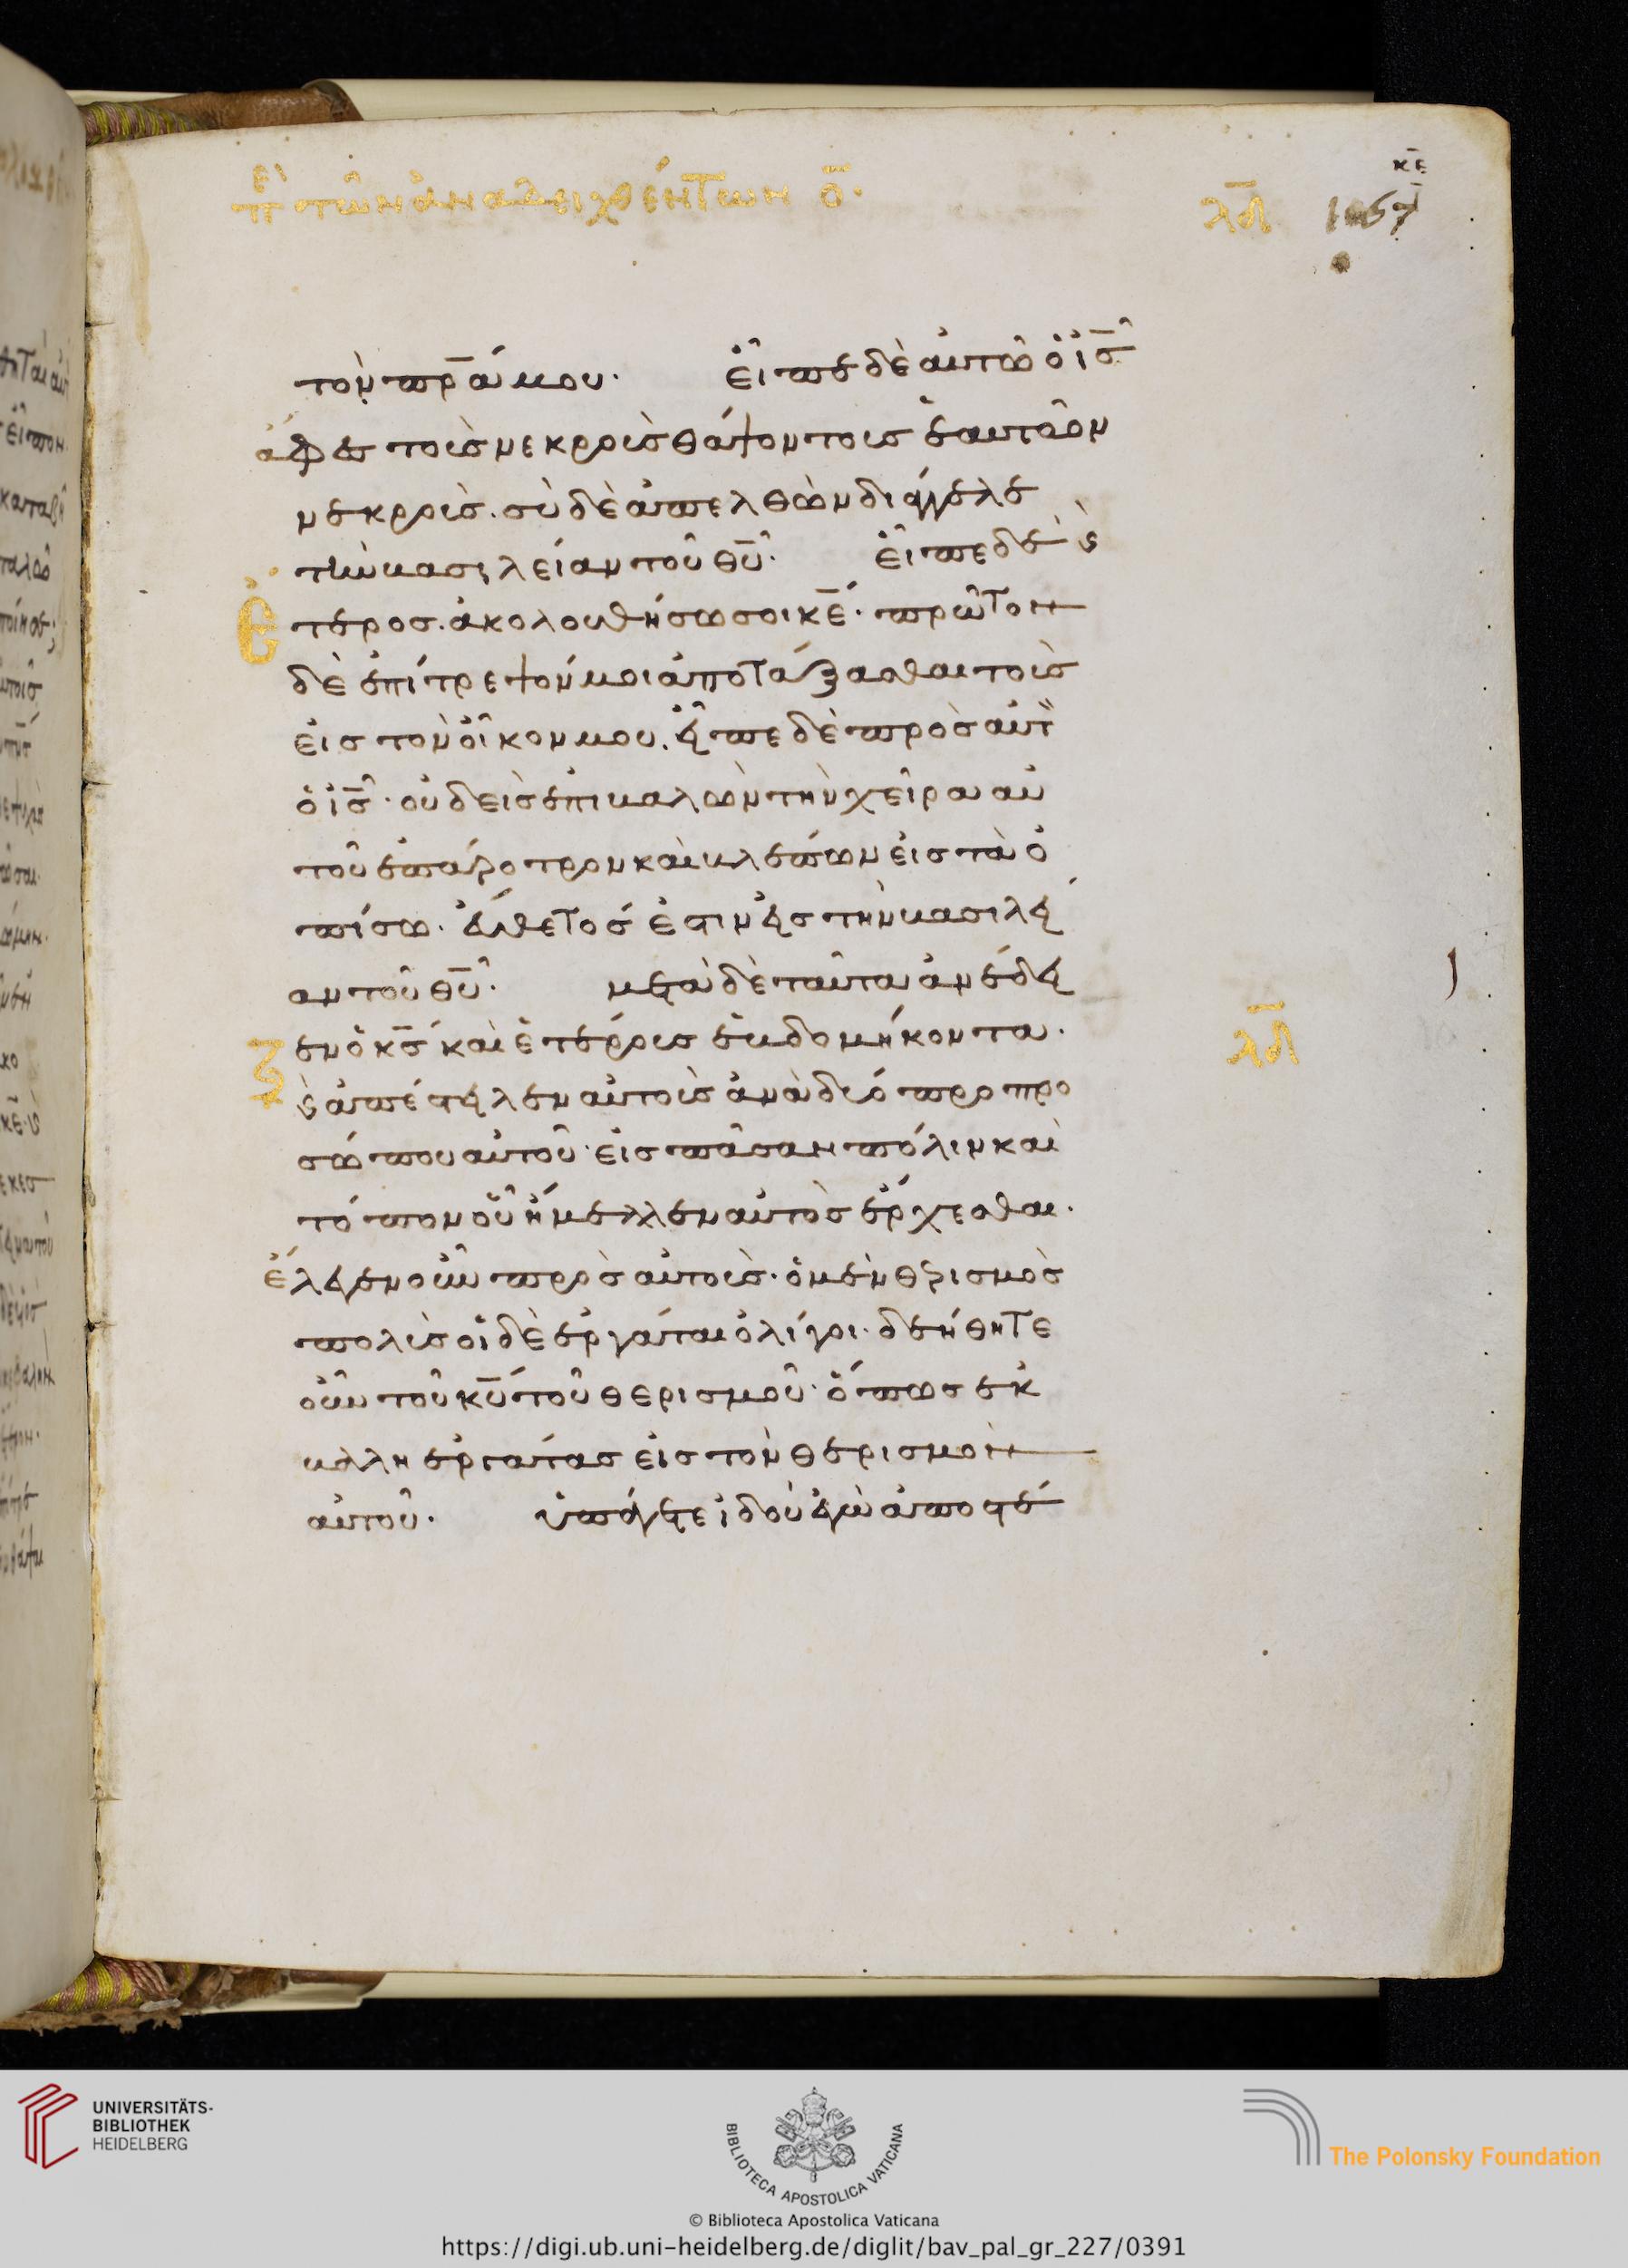 ἐπὶ τῶν ἀναδειχθέντων ο̅·
κε̅
λδ 
τὸν πρ̅α μου· εἶπε δὲ αὐτῶ ὁ ἰς̅
ἄφες τοὺς νεκροὺς θάψον τοὺς ἑαυτῶν
νεκρούς. σὺ δὲ ἀπελθὼν διάγγελε
τὴν βασιλείαν τοῦ θυ̅· εἶπε δὲ ϗ
ἕτερος. ἀκολουθήσω σοι κε̅· πρῶτον
δὲ ἐπίτρεψόν μοι ἀποτάξασθαι τοῖς
εἰς τὸν οἶκον μου. εἶπε δὲ πρὸς αὐτ
ὁ ἰς̅· οὐδεὶς ἐπιβαλὼν τὴν χεῖρα αὐ
τοῦ ἐπ' ἄροτρον καὶ βλέπων εἰς τὰ ὀ
πίσω· εὔθετός ἐστιν εἰς τὴν βασιλεί
αν τοῦ θυ̅· μετὰ δὲ ταῦτα ἀνέδει
ξεν ὁ κς̅ καὶ ἑτέρους ἑβδομήκοντα·
ϗ ἀπέστειλεν αὐτοὺς ἀνὰ δύο πρὸ προ
σώπου αὐτοῦ· εἰς πᾶσαν πόλιν καὶ
τόπον οὗ ἤμελλεν αὐτὸς ἔρχεσθαι·
ἔλεγεν οὖν πρὸς αὐτούς· ὁ μὲν θερισμὸς
πολὺς οἱ δὲ ἐργάται ὀλίγοι· δεήθητε
οὖν τοῦ κυ̅ τοῦ θερισμοῦ· ὅπως ἐκ
βάλλη ἐργάτας εἰς τὸν θερισμὸν
αὐτοῦ· ὑπάγετε ἰδοὺ ἐγὼ ἀποστέ
λδ
UNIVERSITÄTS-
BIBLIOTHEK
HEIDELBERG
BIBLIOTECA APOSTOLICA VATICANA
© Biblioteca Apostolica Vaticana
The Polonsky Foundation
https://digi.ub.uni-heidelberg.de/diglit/bav_pal_gr_227/0391